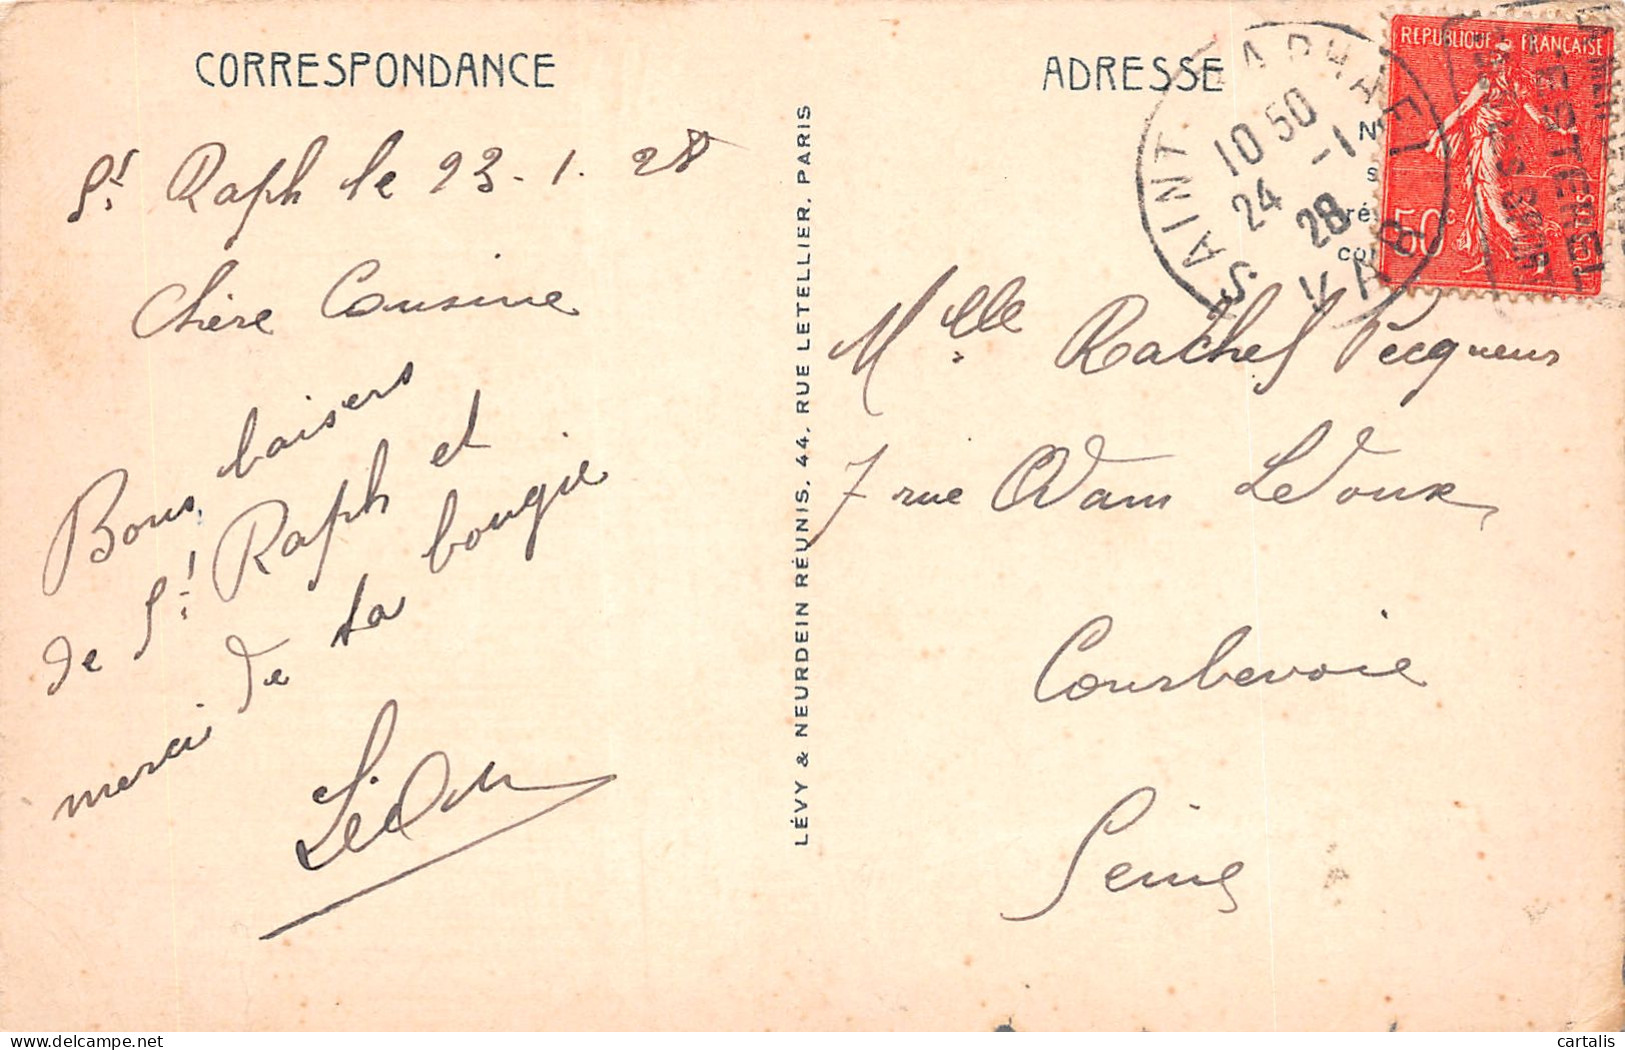 CORRESPONDANCE
St Raph le 23-1.28
Chère Cousine
Bons baisers
de St Raph et
merci de ta bougie
Léon
LÉVY & NEURDEIN RÉUNIS, 44, RUE LETELLIER, PARIS
ADRESSE
SAINT RAPHAEL
10 50
24 -1
28
VAR
REPUBLIQUE FRANÇAISE
50c
POSTES
Mlle Rachel Pecqueus
7 rue Adam Ledoux
Courbevoie
Seine
cartalis